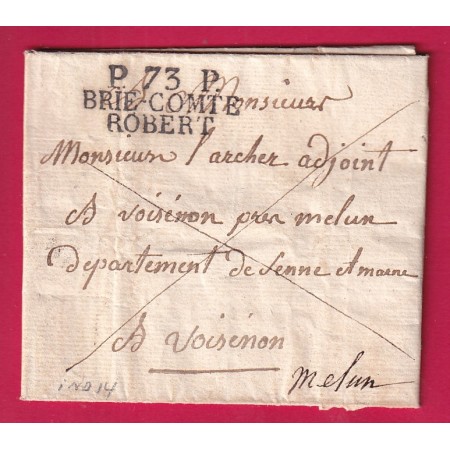 P. 73 P.
BRIE-COMTE
ROBERT
A Monsieur
Monsieur l'archer adjoint
A voisénon pres melun
departement de senne et marne
A voisénon
melun
ind 14